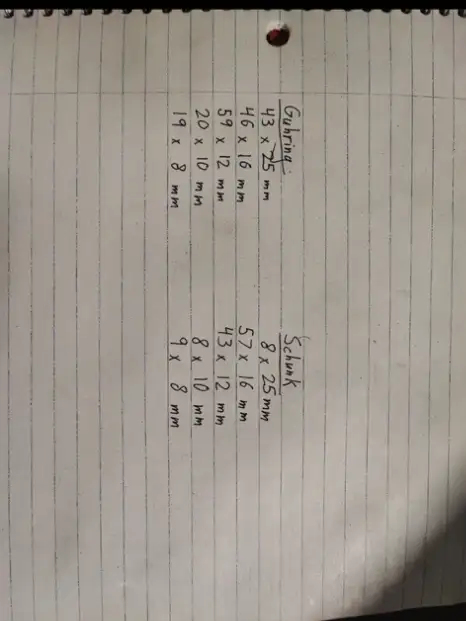 Guhring
43 x 25 mm
46 x 16 mm
59 x 12 mm
20 x 10 mm
19 x 8 mm
Schunk
8 x 25 mm
57 x 16 mm
43 x 12 mm
8 x 10 mm
9 x 8 mm